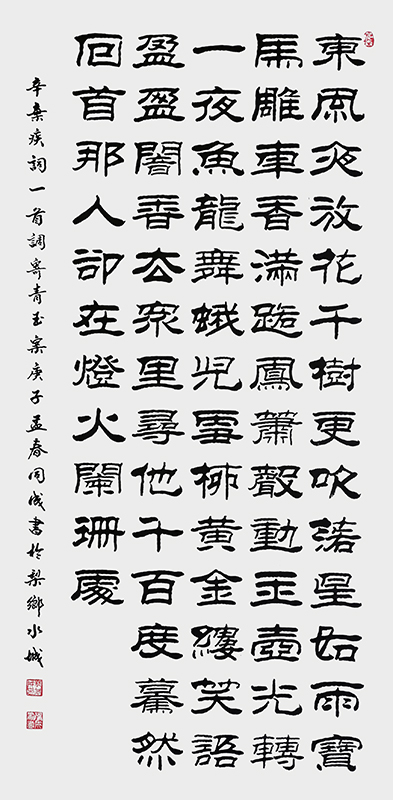 東風夜放花千樹更吹落星如雨寶
馬雕車香滿路鳳簫聲動玉壺光轉
一夜魚龍舞蛾兒雪柳黃金縷笑語
盈盈闇香去眾里尋他千百度驀然
回首那人卻在燈火闌珊處
辛棄疾詞一首調寄青玉案庚子孟春同成書於梨鄉水城